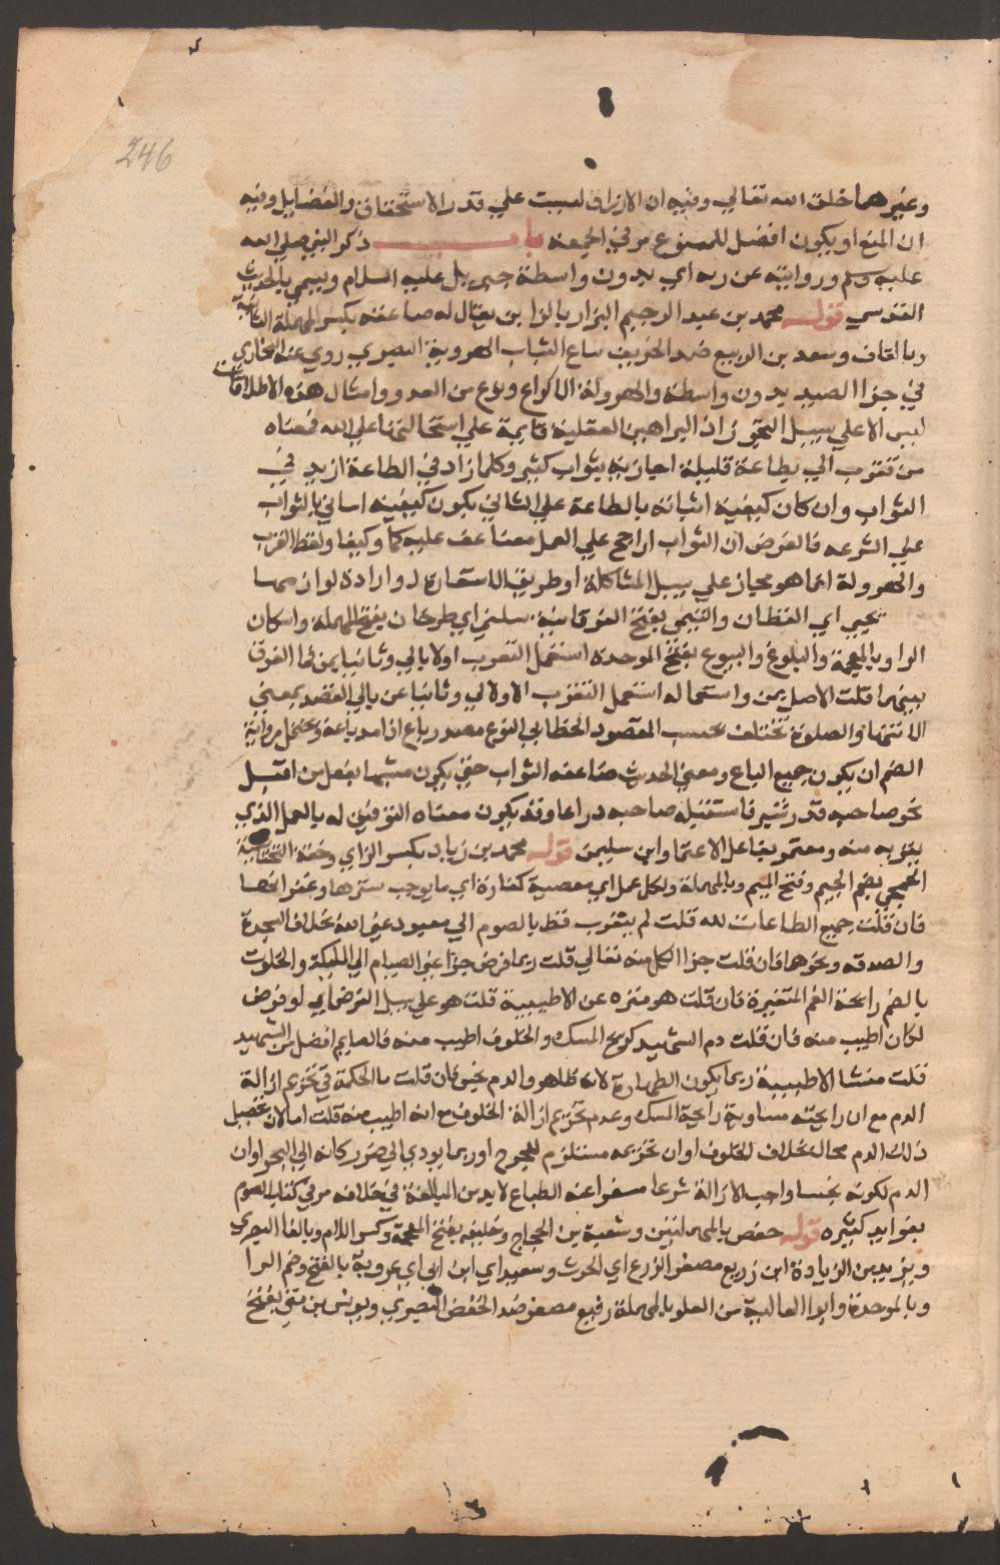 246
وغيرهما خلق الله تعالي وفيه ان الارزاق ليست علي قدر الاستحقاق والفضايل وفيه
ان المنع او يكون افضل للممنوع مر في الجمعة باب ذكر النبي صلي الله
عليه وسلم وروايته عن ربه اي بدون واسطة جبريل عليه السلام ويسمي بالحديث
القدسي قوله محمد بن عبد الرحيم البزار بالزا بن يقال له صاعقه بكسر المهملة الثانية
وبالقاف وسعد بن الربيع ضد الخريف بياع الثياب الهروية البصري روي عنه البخاري
في جزا الصيد بدون واسطة والهرولة الاسراع ونوع من العدو وامثال هذه الاطلاقات
ليس الا علي سبيل التجوز اذ البراهين العقلية قايمة علي استحالتها علي الله فمعناه
من تقرب الي بطاعة قليلة اجازيه بثواب كثير وكلما زاد في الطاعة ازيد في
الثواب وان كان كيفية اتيانه بالطاعة علي التاني يكون كيفية اتياني بالثواب
علي السرعه فالغرض ان الثواب راجح علي العمل مضاعف عليه كما وكيفا ولفظ القرب
والهرولة انما هو مجاز علي سبيل المشاكلة او طريق الاستعارة او ارادة لوازمهما
يحيي اي القطان والتيمي بفتح الفوقانية سليمن اي طرخان بفتح المهملة واسكان
الرا وبالمعجمة والبلوغ والبيوع بفتح الموحدة استعمل التقرب اولا بالي وثانيا بمن فما الفرق
بينهما قلت الاصل بمن واستعماله استعمل التقرب الاول لي وثانيا عن بالي لقصد بمعني
الانتها والصلوة تختلف بحسب المقصود الخطابي البوع مصدر باع اذا مد باعه ويحتمل برواية
الضم ان يكون جمع الباع ومعني الحديث مضاعفة الثواب حتي يكون مشبها بفعل من اقبل
نحو صاحبه قدر شبر فاستقبله صاحبه دراعا وقد يكون معناه التوفيق له بالعمل الذي
يقربه منه ومعتمر بفاعل الاعتما وابن سليمن قوله محمد بن زياد بكسر الزاي وخفة التحتانية
الجمحي بضم الجيم وفتح الميم وبالمهملة ولكل عمل اي معصية كفارة اي ما يوجب سترها وغفرانها
فان قلت جميع الطاعات لله قلت لم يتقرب قط بالصوم الي معبود غير الله بخلاف السجدة
والصدقه ونحوها فان قلت جزا الكل منه تعالي قلت ربما فوض جزا غير الصيام الي المليكة والخلوف
بالضم رائحة الفم المتغيرة فان قلت هو منزه عن الاطيبية قلت هو علي سبيل الفرض اي لو فرض
لكان اطيب منه فان قلت دم الشهيد كريح المسك والخلوف اطيب منه فالصايم افضل من الشهيد
قلت منشا الاطيبية ربما يكون الطهارة لانه طاهر والدم نجس فان قلت ما الحكمة في تحريم ازالة
الدم مع ان رايحته مساوية رايحة المسك وعدم تحريم ازالة الخلوف مع انه اطيب منه قلت اما لان تحصيل
ذلك الدم محال بخلاف الخلوف او ان تحريمه مستلزم للحرج او ربما يودي الي ضرر كانه الي البحر او ان
الدم لكونه نجسا واجب الازالة شرعا منفرا عنه الطباع لابد من المبالغة في خلافه مر في كتاب الصوم
بفوايد كثيره قوله حفص بالمهملتين وشعبة بن الحجاج وخليفة بفتح المعجمة وكسر اللام وبالفا البصري
ويزيد من الزيادة ابن زريع مصغر الزرع اي الحرث وسعيد اي ابن ابي عروبة بالفتح وضم الرا
وبالموحدة وابوا العالية من العلو بالمهملة رفيع مصغر ضد الخفض البصري ويونس بن متي بفتح